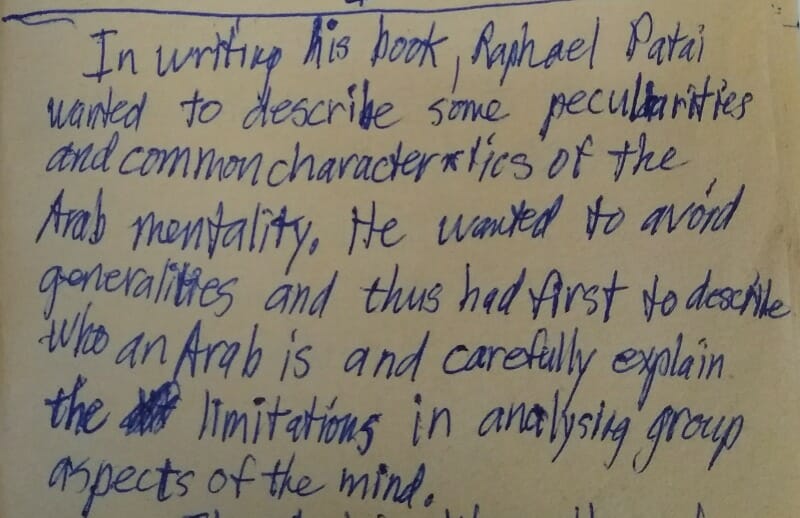 In writing his book, Raphael Patai
wanted to describe some peculiarities
and common characteristics of the
Arab mentality. He wanted to avoid
generalities and thus had first to describe
who an Arab is and carefully explain
the limitations in analysing group
aspects of the mind.